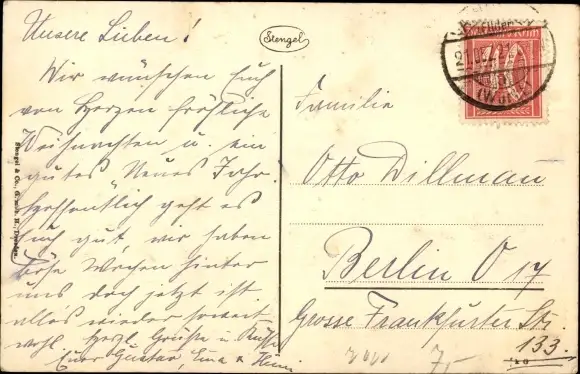 Unsere Lieben!
Wir wünschen Euch
von Herzen fröhliche
Weihnachten u. ein
gutes Neues Jahr.
Hoffentlich geht es
Euch gut, wir haben
böse Wochen hinter
uns doch jetzt ist
alles wieder soweit
wohl. Herzl. Grüsse u. Küsse
Euer Gustav, Erna u
Stengel
Stengel & Co., G. m. b. H., Dresden.
Familie
Otto Dillmann
Berlin O 17
Grosse Frankfurter Str.
133.
7,-